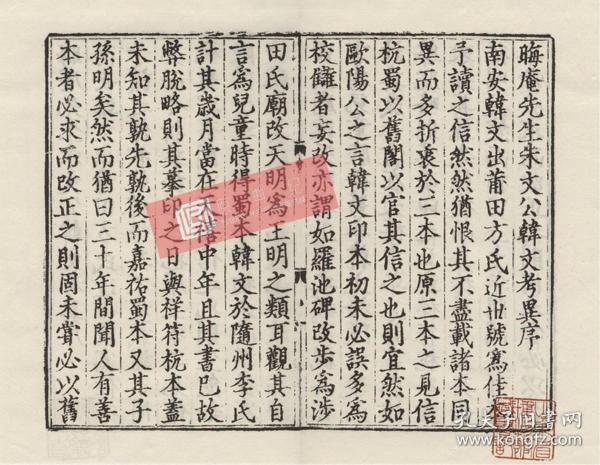 晦庵先生朱文公韓文考異序
南安韓文出莆田方氏近世號為佳本
予讀之信然然猶恨其不盡載諸本同
異而多折衷於三本也原三本之見信
杭蜀以舊閣以官其信之也則宜然如
歐陽公之言韓文印本初未必誤多為
校讎者妄改亦謂如羅池碑改步為涉
田氏廟改天明為王明之類耳觀其自
言為兒童時得蜀本韓文於隨州李氏
計其歲月當在天禧中年且其書已故
弊脫略則其摹印之日與祥符杭本蓋
未知其孰先孰後而嘉祐蜀本又其子
孫明矣然而猶曰三十年間聞人有善
本者必求而改正之則固未嘗必以舊
孔夫子旧书网
www.kongfz.com